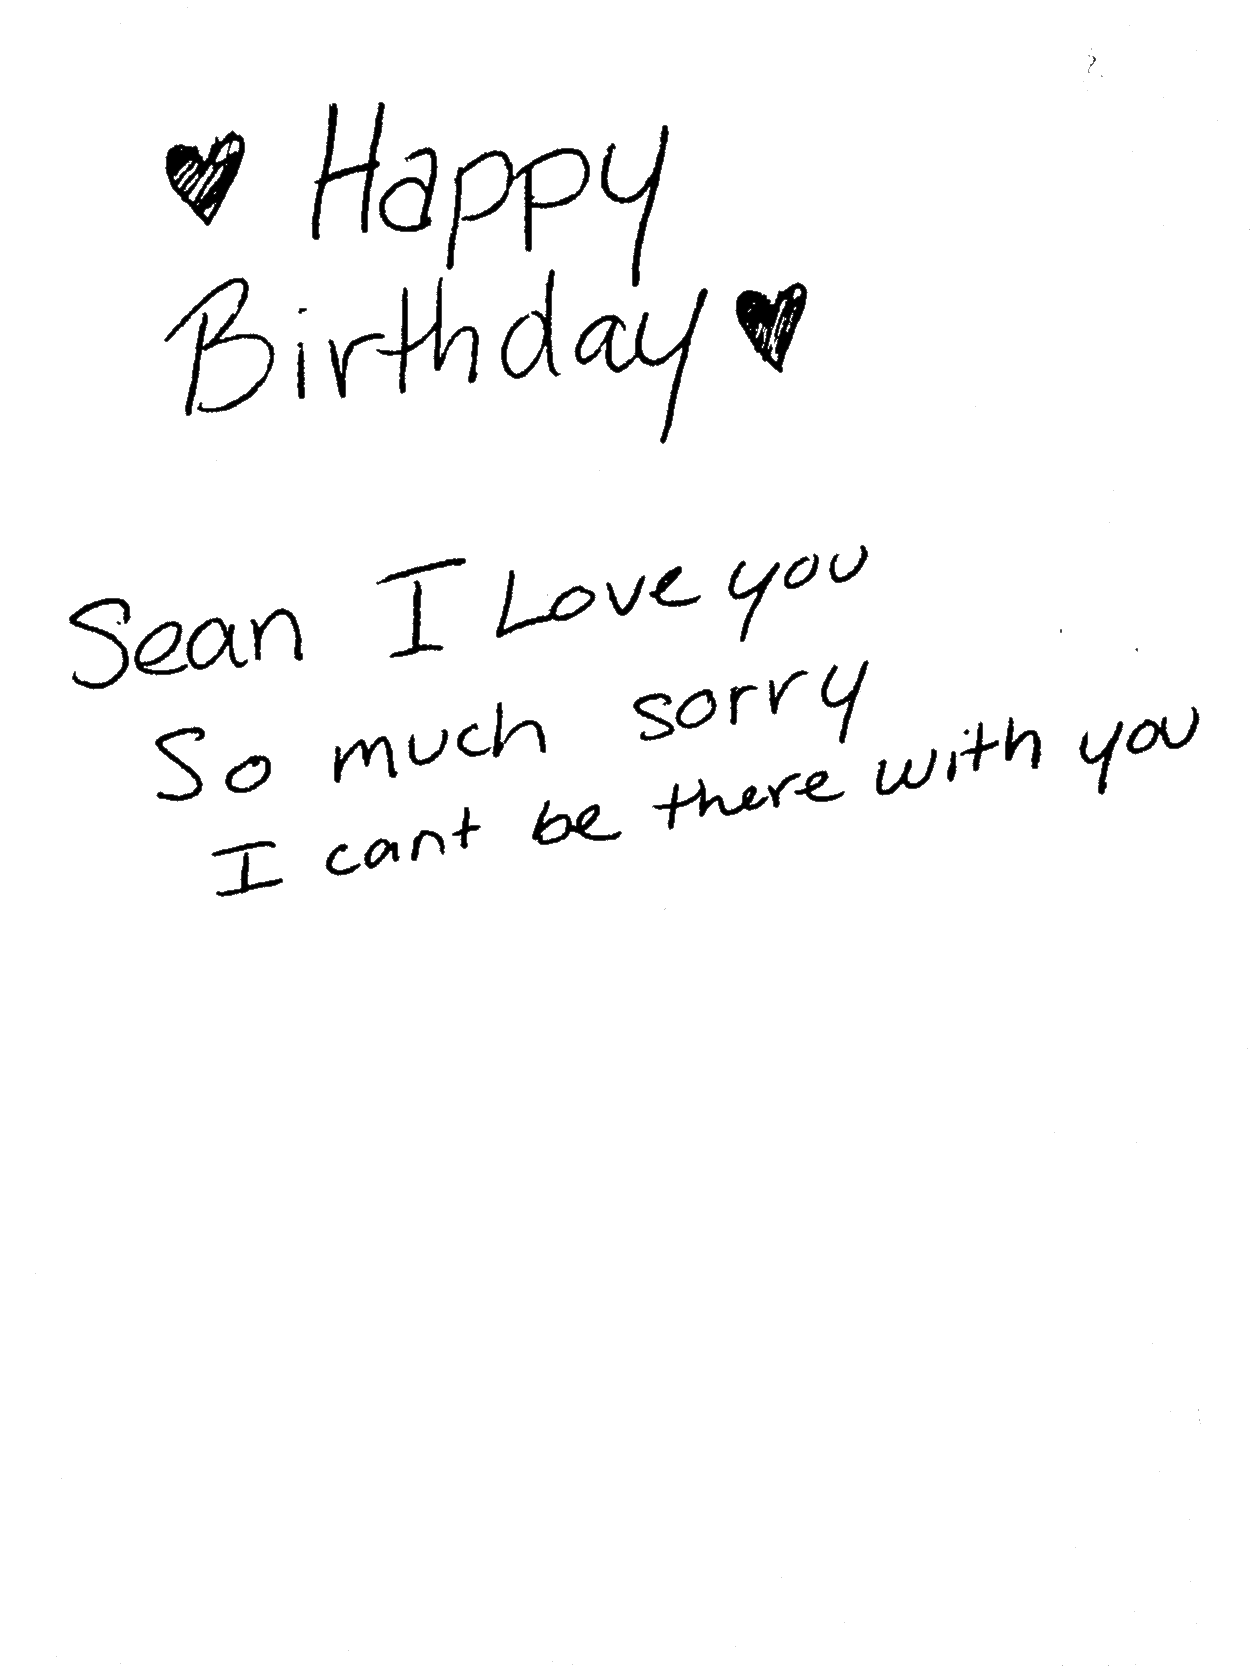 Happy
Birthday
Sean I Love you
So much sorry
I cant be there with you